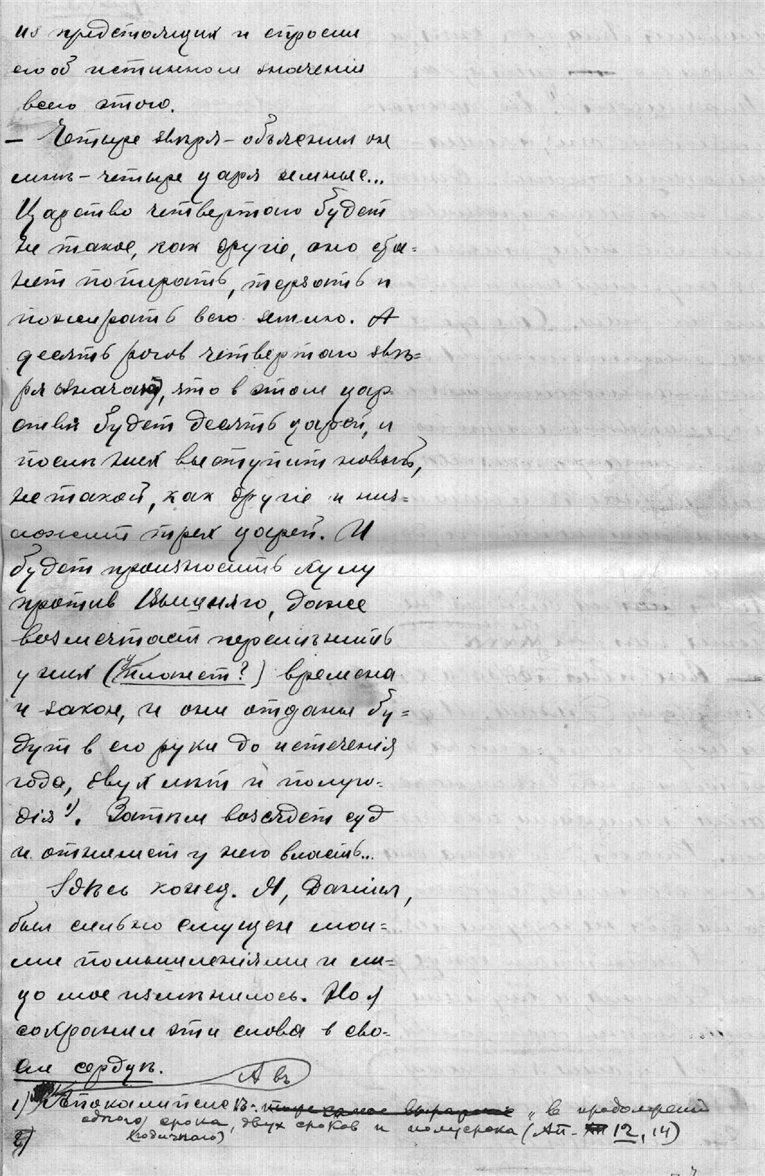 из предстоящих и спросил
его об истинном значенiи
всего этого.
— Четыре звѣря – объяснил он
мнѣ – четыре царя земные...
Царство четвертаго будет
не такое, как другiе, оно ста=
нет попирать, терзать и
пожирать всю землю. А
десять рогов четвертаго звѣ=
ря значат, что в этом цар
ствѣ будет десять царей, и
послѣ них выступит новый,
не такой, как другiе и низ=
ложит трех царей. И
будет произносить хулу
против Всевышняго, даже
возмечтает перемѣнить
у них (у планет?) времена
и закон, и они отданы бу=
дут в его руки до истеченiя
года, двух лѣт и полуго=
дiя 1). Затѣм возсядет суд
и отнимет у него власть...
Здѣсь конец. Я, Данiил,
был сильно смущен мои=
ми помышленiями и ли=
цо мое измѣнилось. Но я
сохранил эти слова в сво=
ем сердцѣ.
А въ
1) Апокалипсисѣ: "в продолженiи
одного срока, двух сроков и полусрока (Ап. 12, 14)
(годичнаго)
2)